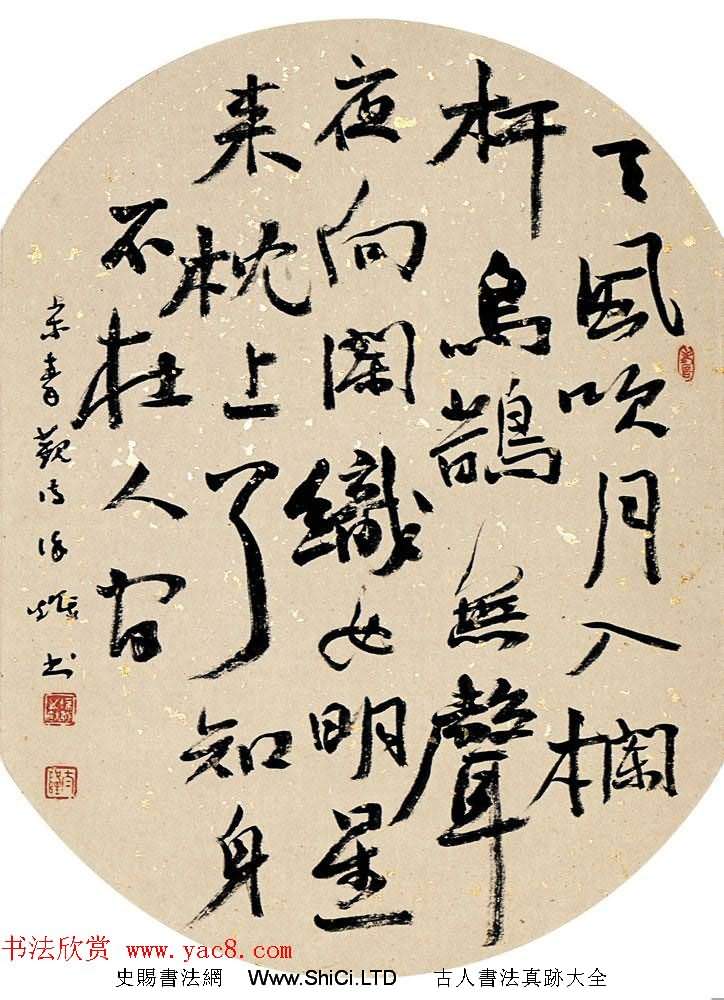 天風吹月入欄
杆烏鵲無聲
夜向闌織女明星
來枕上了知身
不在人間
宋秦觀詩 書
书法欣赏 www.yac8.com
史賜書法網 Www.ShiCi.LTD 古人書法真跡大全